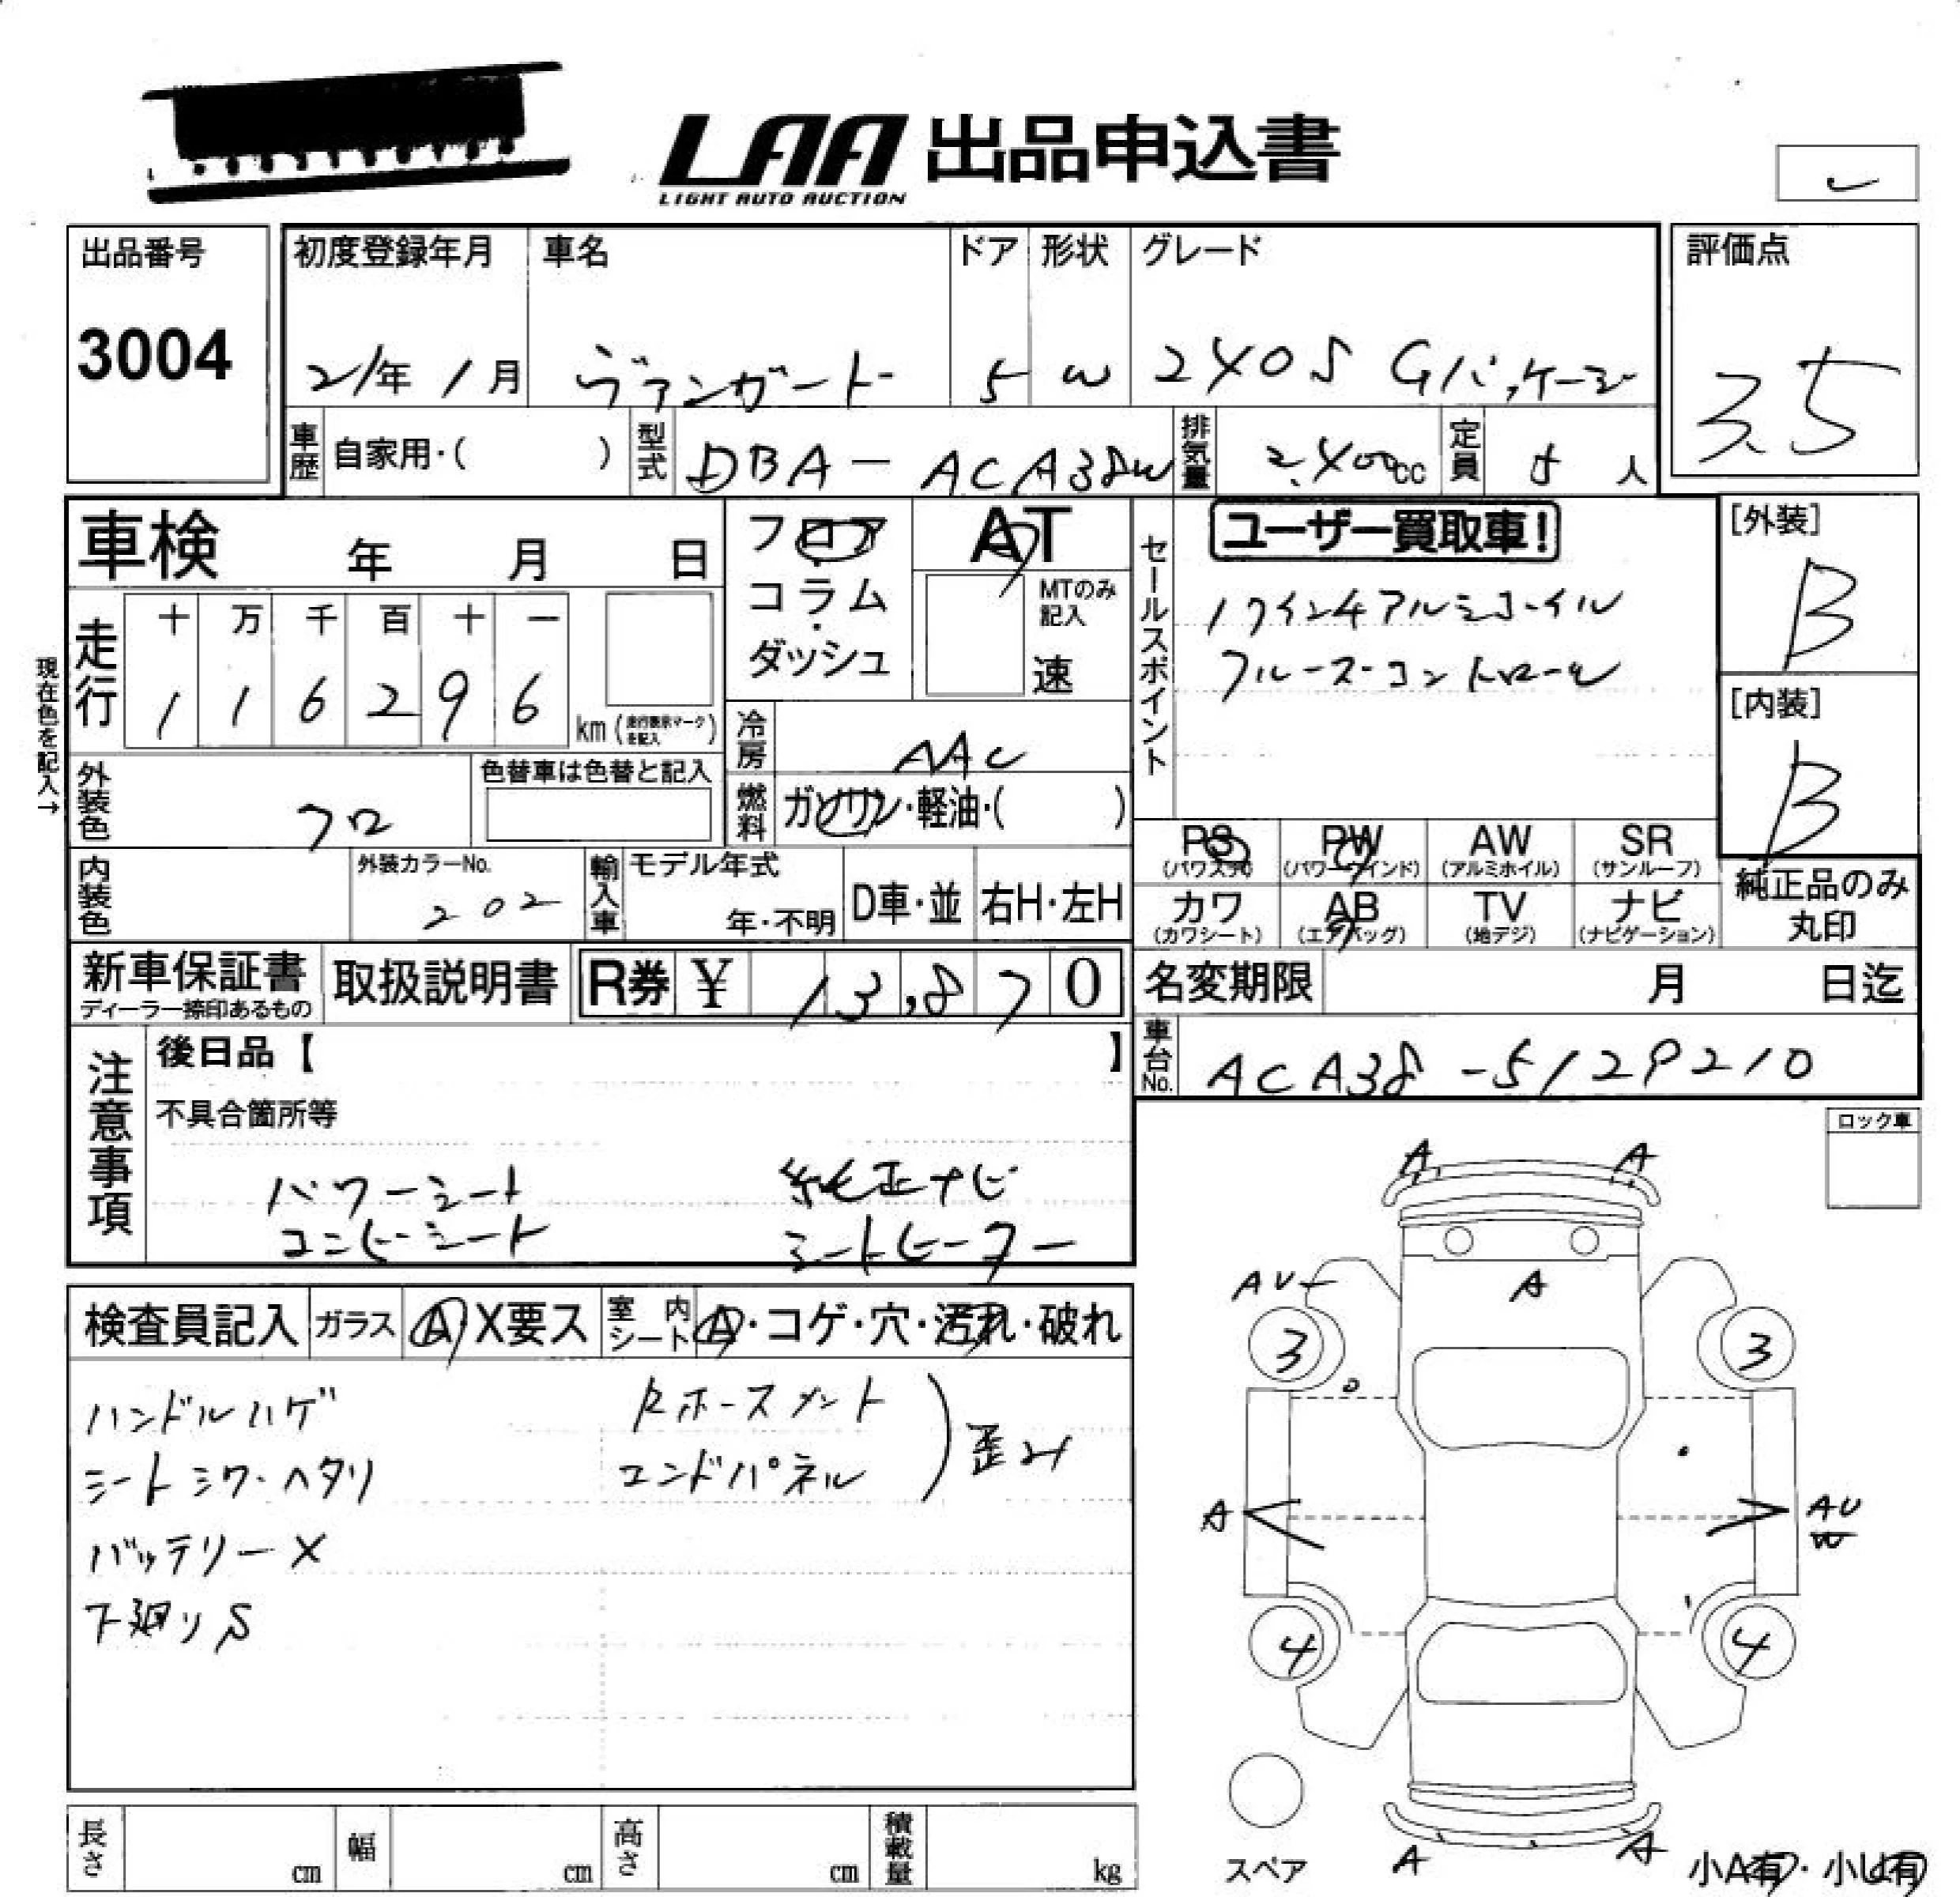 LAA 出品申込書
LIGHT AUTO AUCTION
出品番号
3004
初度登録年月
21年 1月
車名
ヴァンガード
ドア
5
形状
W
グレード
240S Gパッケージ
評価点
3.5
車歴
自家用・( )
型式
DBA-ACA38W
排気量
2,400cc
定員
5人
車検 年 月 日
フロア・コラム・ダッシュ
AT
MTのみ記入
速
セールスポイント
ユーザー買取車!
17インチアルミホイル
クルーズコントロール
[外装]
B
[内装]
B
現在色を記入→
走行
十 万 千 百 十 一
1 1 6 2 9 6
km (走行表示マークを記入)
冷房
AAC
燃料
ガソリン・軽油・( )
外装色
クロ
色替車は色替と記入
内装色
外装カラーNo.
202
輸入車
モデル年式
年・不明
D車・並
右H・左H
PS
(パワステ)
PW
(パワーウインド)
AW
(アルミホイル)
SR
(サンルーフ)
カワ
(カワシート)
AB
(エアバッグ)
TV
(地デジ)
ナビ
(ナビゲーション)
純正品のみ
丸印
新車保証書
ディーラー捺印あるもの
取扱説明書
R券 ¥ 13,870
名変期限 月 日迄
車台No.
ACA38-5129210
注意事項
後日品【 】
不具合箇所等
パワーシート 純正ナビ
コンビシート シートヒーター
ロック車
検査員記入
ガラス
A X要ス
室内シート
A・コゲ・穴・汚れ・破れ
ハンドルハゲ
シートシワ・ヘタリ
バッテリーX
下廻りS
Rホースメント
エンドパネル
) 歪み
A A
AU A
3 3
A AU
W
4 4
スペア
A A
小A有・小U有
長さ cm
幅 cm
高さ cm
積載量 kg